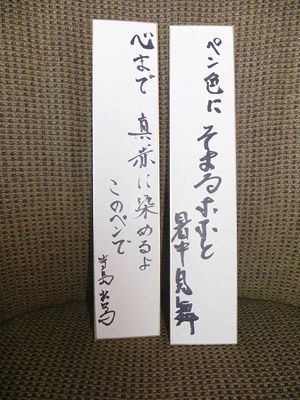 ペン色に そまるホホと
暑中見舞
心まで 真赤に染めるよ
このペンで